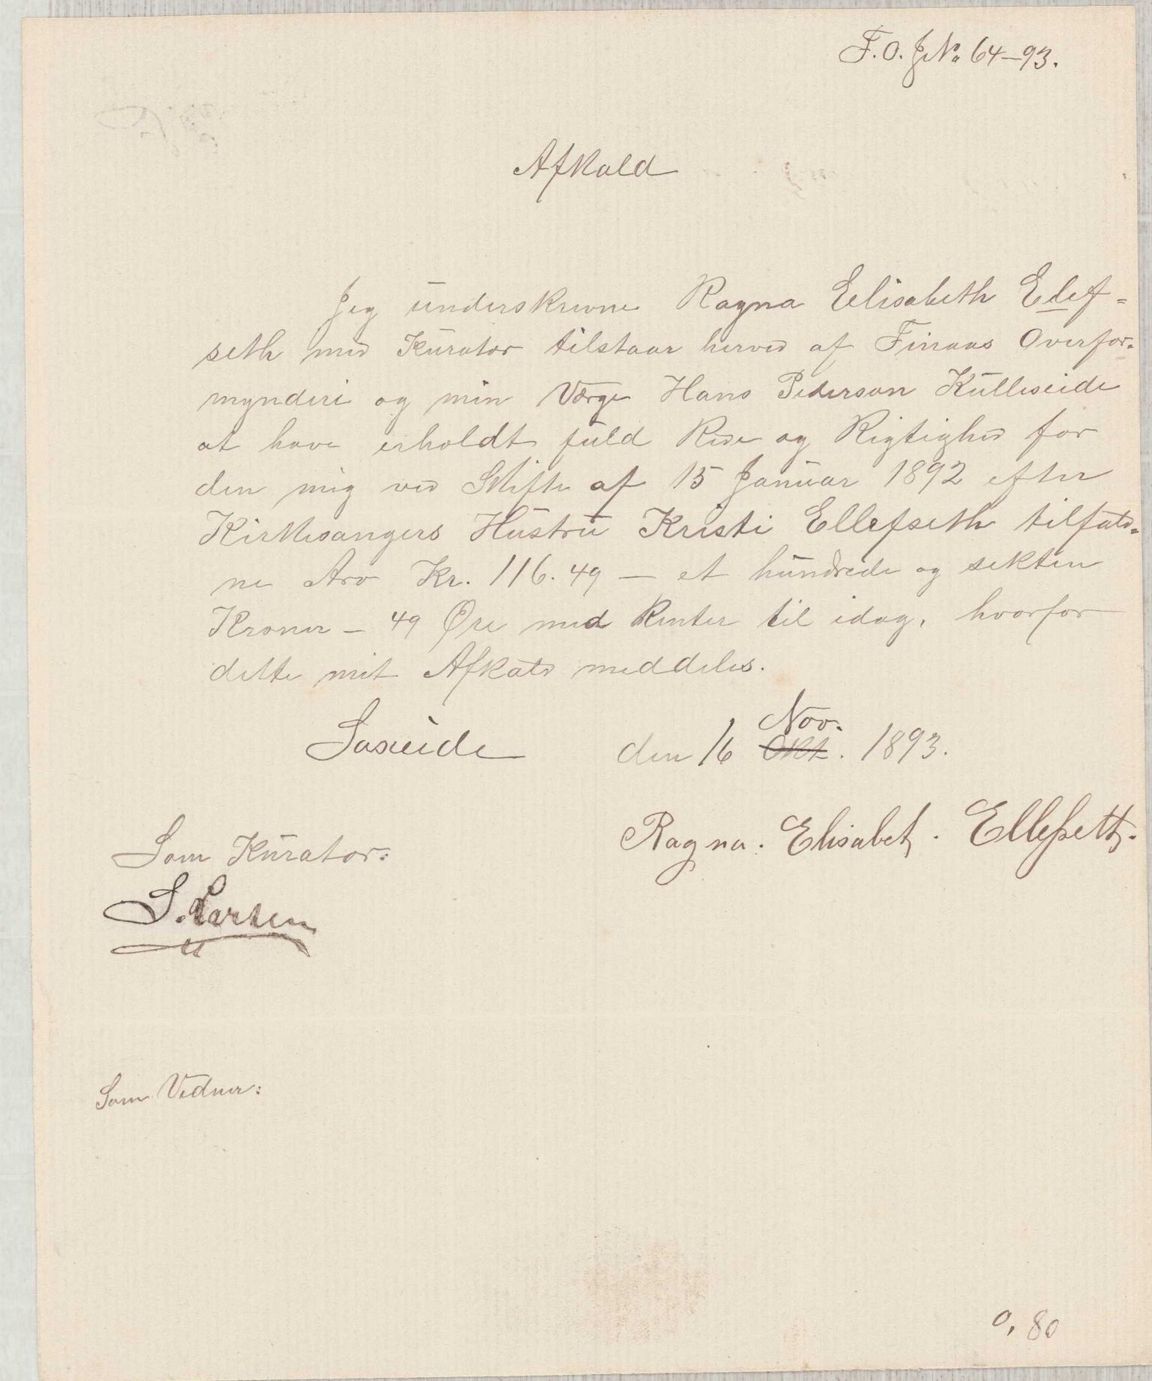 F.O. J.No 64-93.
Afkald
Jeg underskrevne Ragna Eelisabeth Elef-
seth med Kurator tilstaar herved af Finaas Overfor-
mynderi og min Værge Hans Pederson Kulleseide
at have erholdt fuld Rede og Rigtighed for
den mig ved Skifte af 15 Januar 1892 efter
Kirkesangers Hustru Kristi Ellefseth tilfald-
ne Arv Kr. 116.49 — et hundrede og seksten
Kroner - 49 Øre med Renter til idag, hvorfor
dette mit Afkald meddeles.
den 16 Okt. Nov. 1893.
Ragna. Elisabet. Ellefsett.
Som Kurator:
S. Larsen
Som Vidner:
0,80